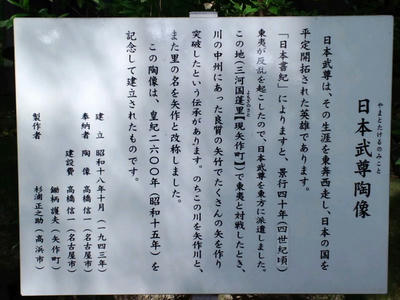 やまとたけるのみこと
日本武尊陶像
日本武尊は、その生涯を東奔西走し、日本の国を
平定開拓された英雄であります。
「日本書紀」によりますと、景行四十年(四世紀頃)
東夷が反乱を起こしたので、日本武尊を東方に派遣しました。
この地(三河国蓬里【現矢作町】)で東夷と対戦したとき、
川の中州にあった良質の矢竹でたくさんの矢を作り
突破したという伝承があります。のちこの川を矢作川と、
また里の名を矢作と改称しました。
この陶像は、皇紀二六〇〇年(昭和十五年)を
記念して建立されたものです。
建立 昭和十八年十月(一九四三年)
奉納者 陶像 高橋信一(名古屋市)
建設費 高橋信二(名古屋市)
鋤柄護夫(矢作町)
製作者 杉浦正之助(高浜市)